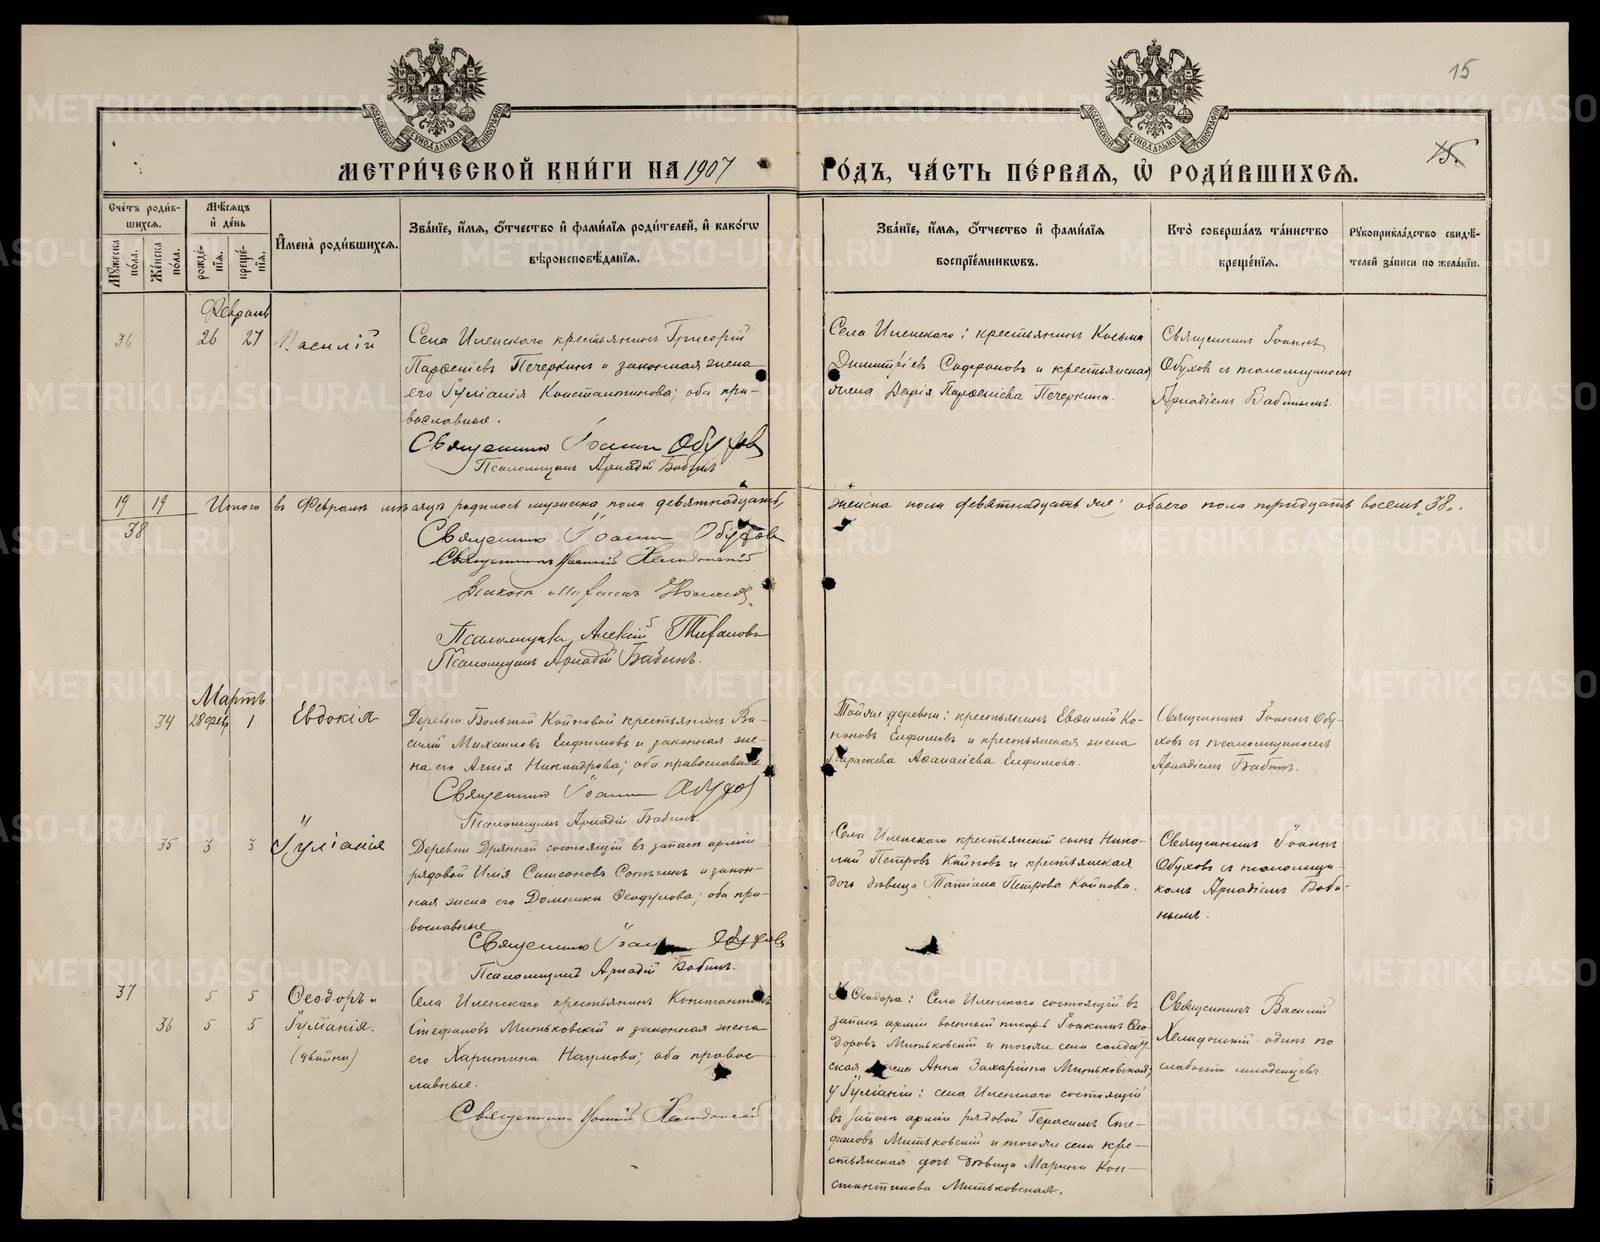 15
15.
МЕТРИ́ЧЕСКОЙ КНИ́ГИ НА 1907
РО́ДЪ, ЧА́СТЬ ПЕ́РВАЯ, Ѽ РОДИ́ВШИХСЯ.
Счетъ роди́в-
шихся.
Мѣсяцъ
и де́нь
Мꙋжеска
по́ла.
Же́нска
по́ла.
рожде́-
нїя.
креще́-
нїя.
И҆мена̀ роди́вшихся.
Зва́нїе, и҆́мя, ѻ҆́тчество и҆ фами́лїя роди́телей, и҆ како́гѡ
вѣроисповѣ́данїя.
Зва́нїе, и҆́мя, ѻ҆́тчество и҆ фами́лїя
воспрїе́мникѡвъ.
Кто̀ соверша́лъ та́инство
креще́нїя.
Рꙋкоприкла́дство свидѣ́-
телей за́писи по жела́нїю.
Февраль
36 26 27 Василій
Села Иленскаго крестьянинъ Григорій
Парѳеніевъ Печеркинъ и законная жена
его Іуліанія Константинова; оба пра-
вославные.
Священникъ Іоаннъ Обуховъ
Псаломщикъ Аркадій Бабинъ
Села Иленскаго: крестьянинъ Косьма
Димитріевъ Сафроновъ и крестьянская
жена Дарія Парѳеніева Печеркина.
Священникъ Іоаннъ
Обуховъ съ псаломщикомъ
Аркадіемъ Бабинымъ.
19 19 Итого въ Февралѣ мѣсяцѣ родилось мужеска пола девятнадцать,
женска пола девятнадцать же; обоего пола тридцать восемь „38„.
38
Священникъ Іоаннъ Обуховъ
Священникъ Хелидонскій
Псаломщикъ Алексій
Псаломщикъ Аркадій Бабинъ.
Мартъ
34 28 фев 1 Евдокія
Деревни Большой Койновой крестьянинъ Ва-
силій Михаиловъ Елфимовъ и законная же-
на его Агнія Никандрова; оба православные
Священникъ Іоаннъ Обуховъ
Псаломщикъ Аркадій Бабинъ.
Той же деревни: крестьянинъ Евѳимій Ко-
ноновъ Елфимовъ и крестьянская жена
Параскева Аѳанасіева Елфимова.
Священникъ Іоаннъ Обу-
ховъ съ псаломщикомъ
Аркадіемъ Бабин.
35 3 3 Іуліанія
Деревни Дрянной состоящій въ запасѣ арміи
рядовой Илія Сампсоновъ и закон-
ная жена его Домника Ѳеодулова; оба пра-
вославные
Священникъ Іоаннъ Обуховъ
Псаломщикъ Аркадій Бабинъ.
Села Иленскаго крестьянскій сынъ Нико-
лай Петровъ Койновъ и крестьянская
дочь дѣвица Татіана Петрова Койнова.
Священникъ Іоаннъ
Обуховъ съ псаломщи-
комъ Аркадіемъ Баби-
нымъ.
37 5 5 Ѳеодоръ и
36 5 5 Іуліанія.
(двойни)
Села Иленскаго крестьянинъ Константинъ
Стефановъ Митьковскій и законная жена
его Харитина Наумова; оба правос-
лавные.
Священникъ Хелидонскій
У Ѳеодора: Села Иленскаго состоящій въ
запасѣ арміи военный писарь Іоакимъ Ѳео-
доровъ Митьковскій и того же села солдат-
ская жена Анна Захаріина Митьковская;
У Іуліаніи: села Иленскаго состоящій
въ запасѣ арміи рядовой Герасимъ Сте-
фановъ Митьковскій и того же села кре-
стьянская дочь дѣвица Марина Кон-
стантинова Митьковская.
Священникъ Василій
Хелидонскій одинъ по
слабости младенцевъ.
METRIKI.GASO-URAL.RU